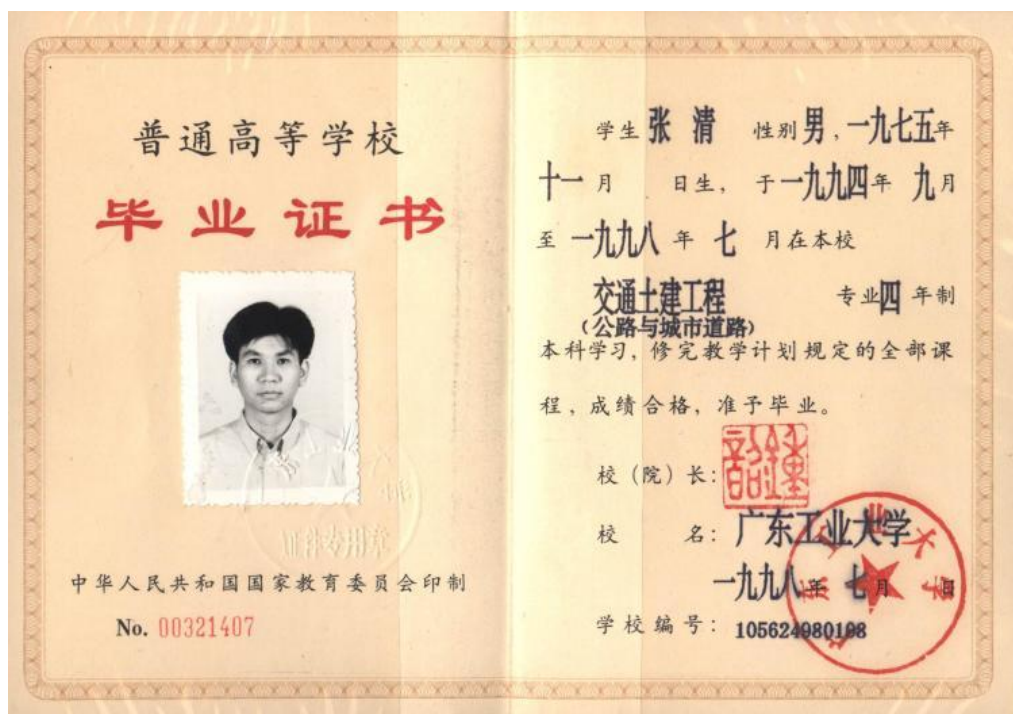 普通高等学校
毕业证书
中华人民共和国国家教育委员会印制
No. 00321407
学生 张清 性别 男，一九七五年
十一月 日生，于一九九四年 九月
至 一九九八 年 七 月在本校
交通土建工程 专业四 年制
（公路与城市道路）
本科学习，修完教学计划规定的全部课
程，成绩合格，准予毕业。
校（院）长：
校 名：广东工业大学
一九九八年 七月 日
学校编号：105624980198